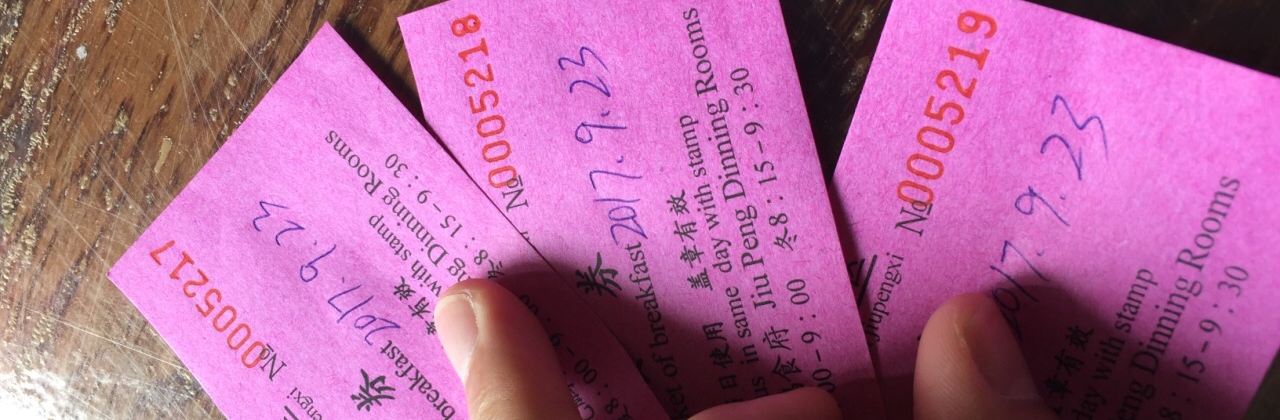 engxi № 0005217
券
breakfast 2017.9.23
有效
with stamp
ng Dinning Rooms
8:00-9: 冬8:15-9:30
№ 0005218
券
ket of breakfast 2017.9.23
日使用 盖章有效
in same day with stamp
食府 Jiu Peng Dinning Rooms
00-9:00 冬8:15-9:30
jiupengxi № 0005219
2017.9.23
章有效
day with stamp
eng Dinning Rooms
8:15-9:30